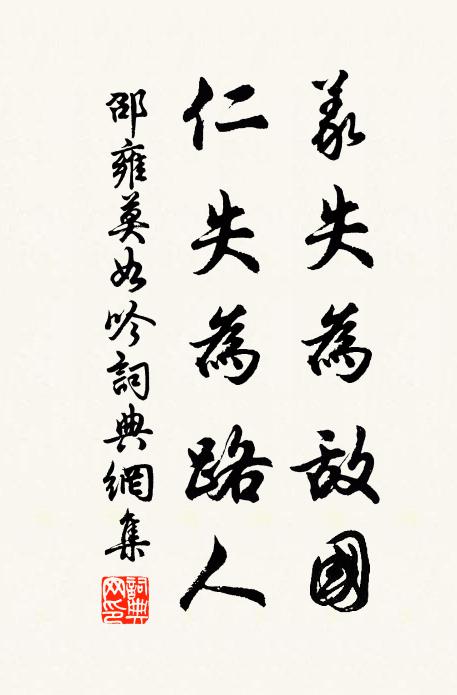 義失為敌國
仁失為路人
邵雍莫如吟詞典網集
詞典网印